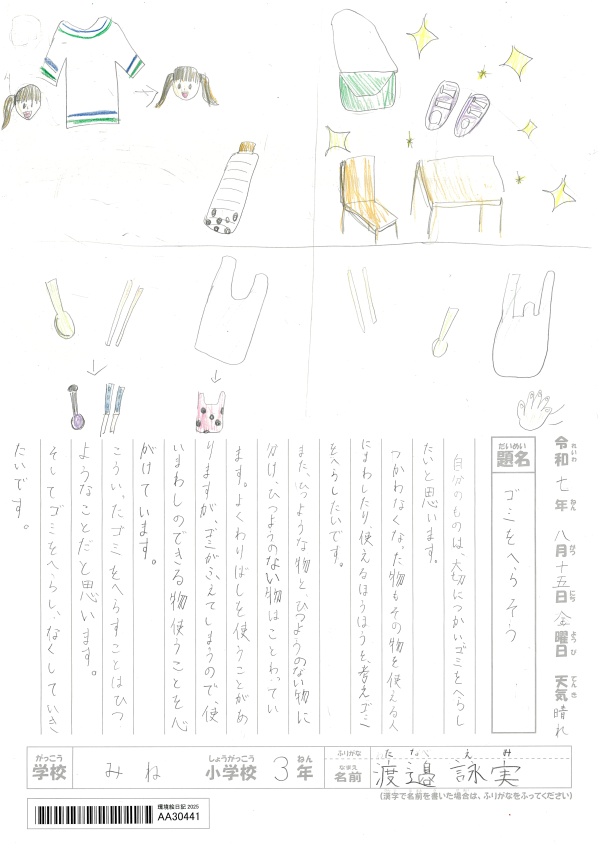 令和七年八月十五日金曜日 天気晴れ
れいわ ねん がつ にち ようび てんき
だいめい
題名
ゴミをへらそう
自分のものは、大切につかい、ゴミをへらし
たいと思います。
つかわなくなった物もその物を使える人
にまわしたり、使えるほうほうを、考えゴミ
をへらしたいです。
また、ひつような物と、ひつようのない物に
分け、ひつようのない物はことわってい
ます。よくわりばしを使うことがあ
りますが、ゴミがふえてしまうので、使
いまわしのできる物使うことを心
がけています。
こういったゴミをへらすことはひつ
ようなことだと思います。
そしてゴミをへらし、なくしていき
たいです。
がっこう
学校
みね
しょうがっこう
小学校
3
ねん
年
ふりがな
たなべ えみ
なまえ
名前
渡邉 詠実
(漢字で名前を書いた場合は、ふりがなをふってください)
環境絵日記 2025
AA30441